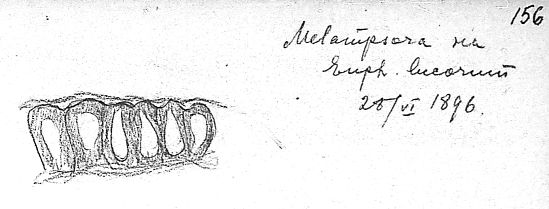 156
Melampsora на
Euph. lucorum
28/VI 1896.